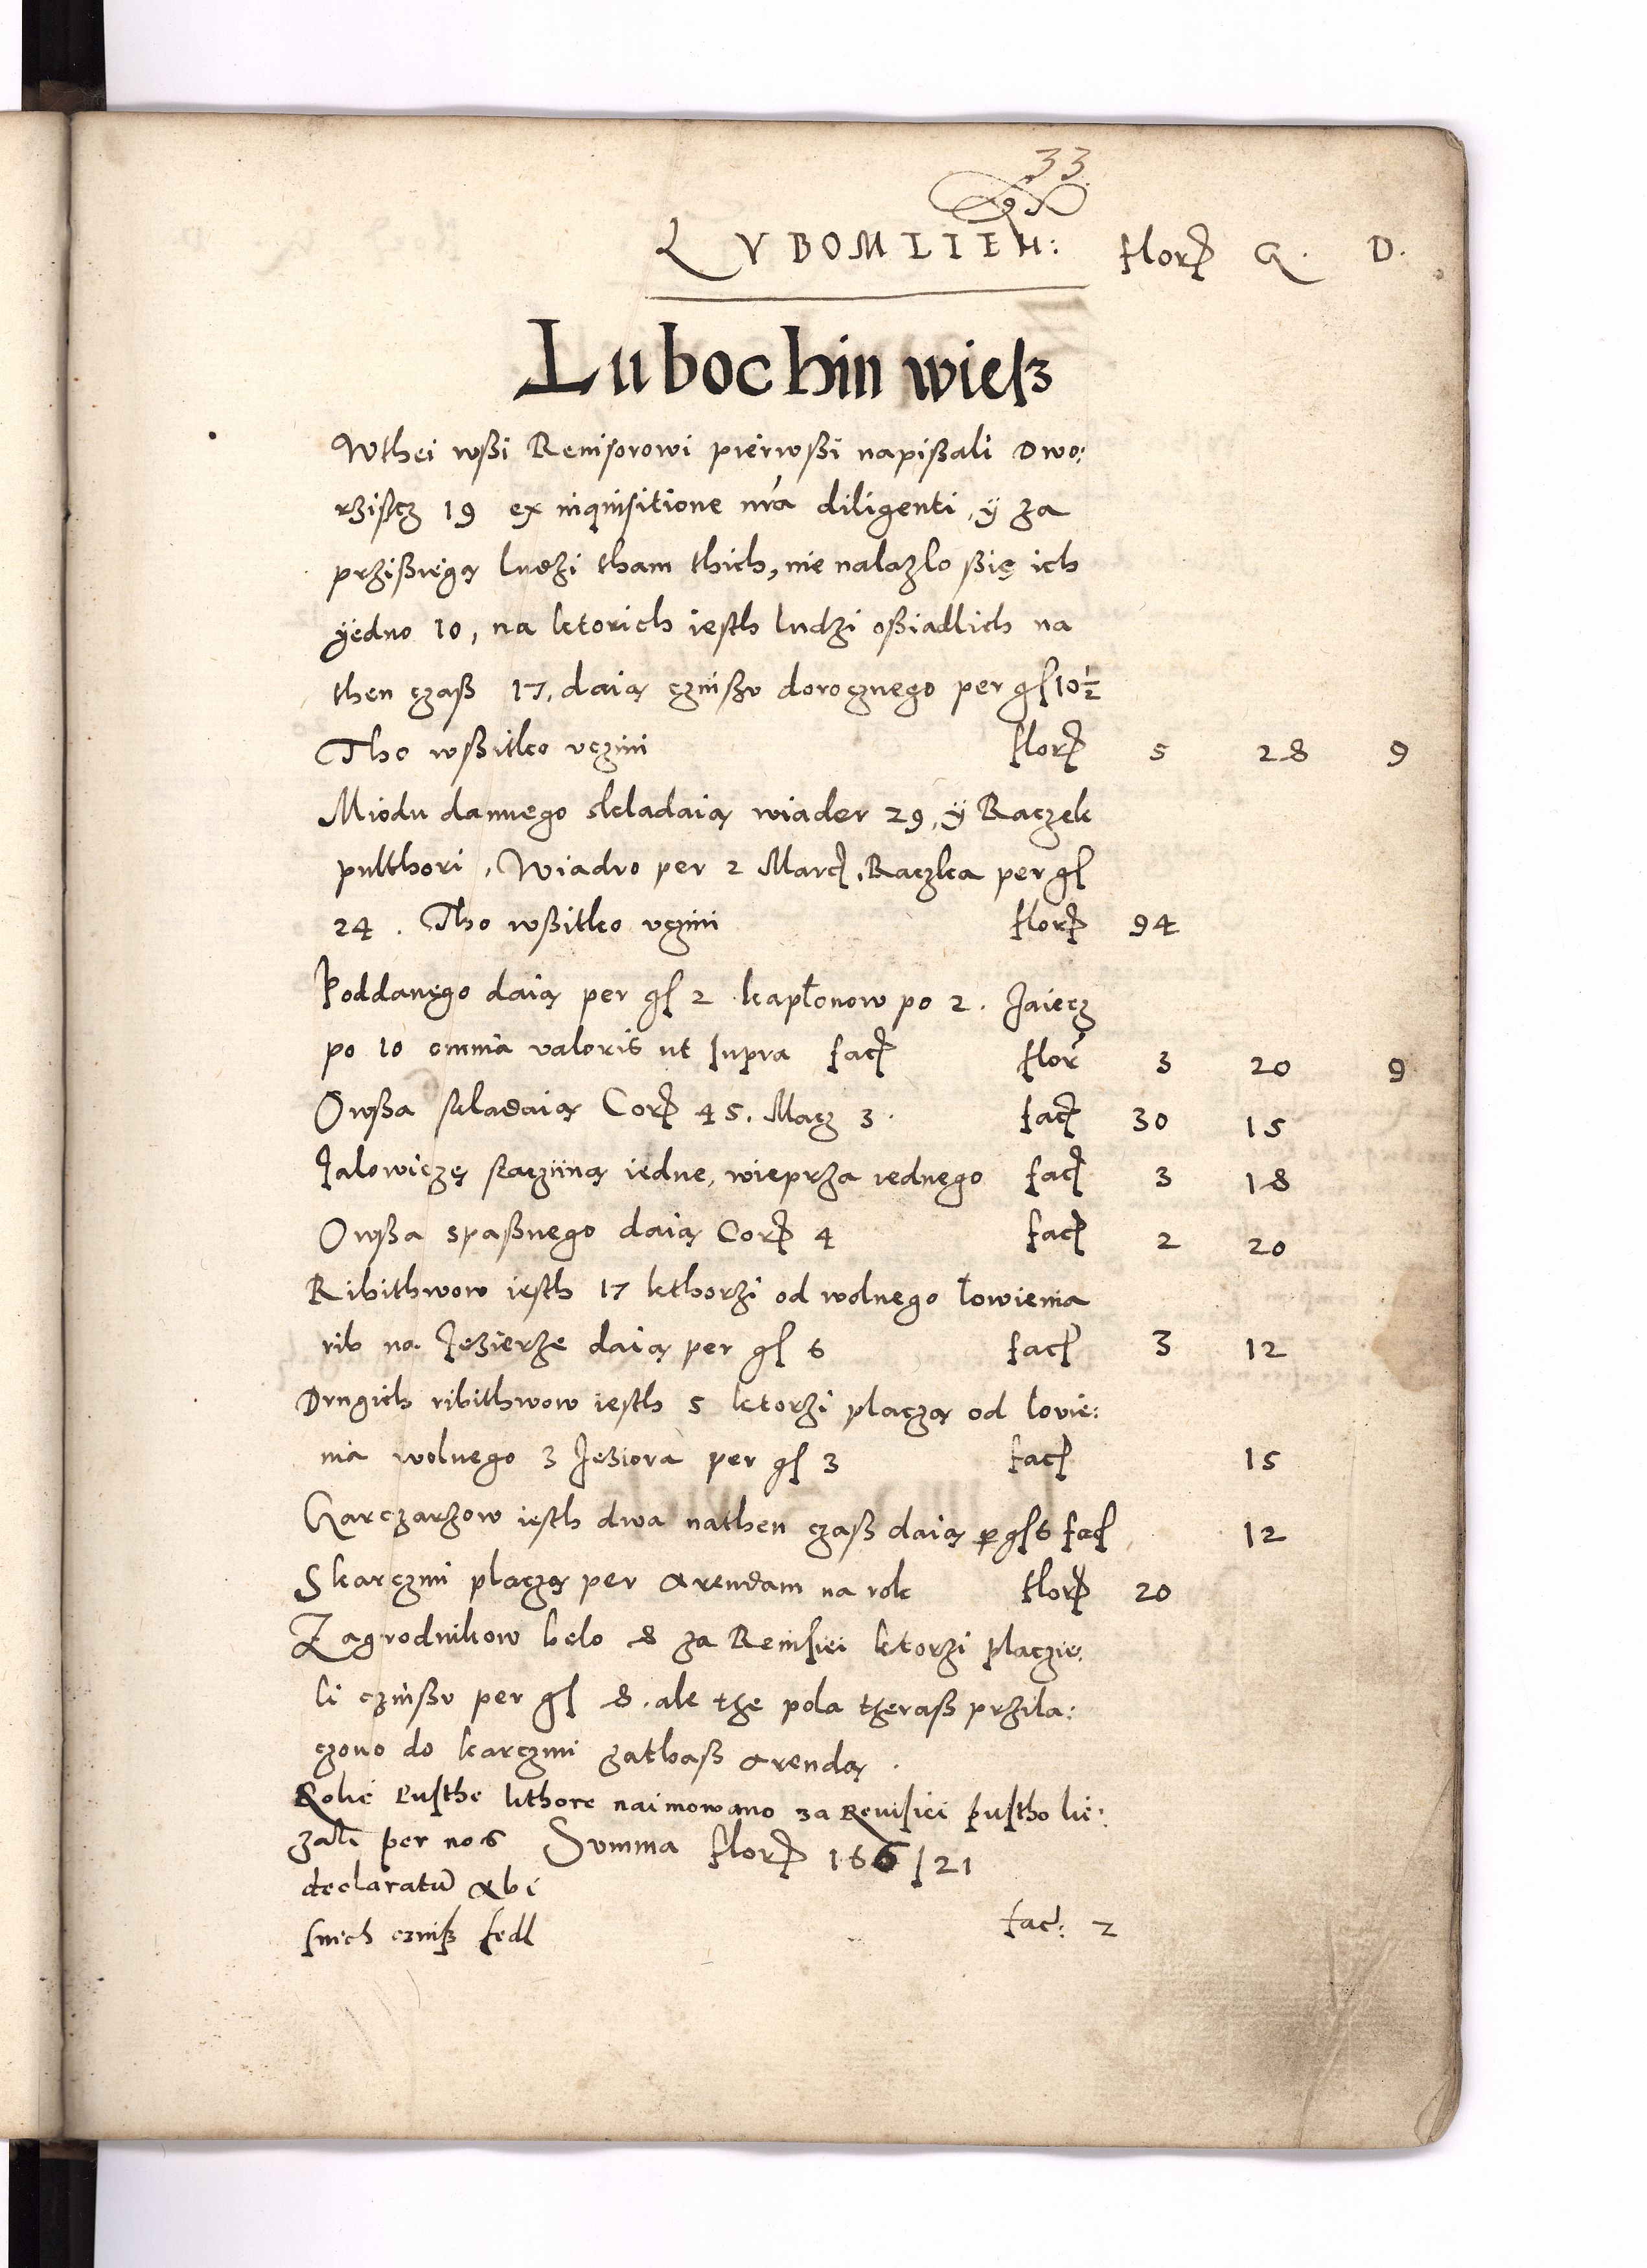 33
LVBOMLIEN: flor G. D.
Lubochin wiesz
Wthei wßi Revisorowi pierwßi napißali Dwo:
rzisċz 19 ex inquisitione nra diligenti, ÿ za
przißiegą ludzi tham thich, nie nalazlo ßię ich
ÿedno 10, na ktorich iesth ludzi oßiadlich na
then czaß 17, daią czinßu dorocznego per gs 10 1/2
Tho wßitko vczini flor 5 28 9
Miodu dannego skladaią wiader 29, ÿ Raczek
pulthori, Wiadro per 2 Marc, Raczka per gs
24. Tho wßitko vczini flor 94
Poddanego daią per gs 2 kapłonow po 2. Jaiecz
po 10 omnia valoris ut supra fac flor 3 20 9
Owßa skladaią Cor 45. Macz 3. fac 30 15
Jalowiczę staczijną iedne, wieprza iednego fac 3 18
Owßa spaßnego daią Cor 4 fac 2 20
Ribithwow iesth 17 kthorzi od wolnego łowienia
rib na Jezierze daią per gs 6 fac 3 12
Drugich ribithwow iesth 5 ktorzi placzą od lovie:
nia wolnego 3 Jeziora per gs 3 fac 15
Karczarzow iesth dwa nathen czaß daią p gs 6 fac 12
Skarczmi placzą per Arendam na rok flor 20
Zagrodnikow belo 8 za Revisiei ktorzi placzie:
li czinßu per gs 8. ale the pola theraß przila:
czono do karczmi zathaß arendą.
Rolie Pusthe kthore naimowano za Revisiei pustho lie:
zali per nos Summa flor 166 / 21
declaratu ubi
snich czinß sedl fac: 2